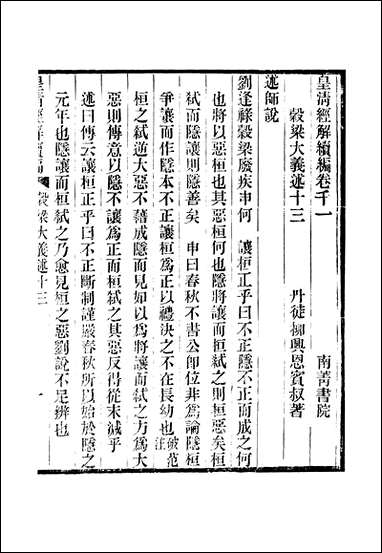 皇清經解續編卷千一
南菁書院
穀梁大義述十三
丹徒柳興恩賓叔著
述師說
劉逢祿穀梁廢疾申何　讓桓正乎曰不正而成之何
也將以惡桓也其惡桓何也隱將讓而桓弑之則桓惡矣桓
弑而隱讓則隱善矣　申曰春秋不書公卽位非爲論隱桓
爭讓而作隱本不正讓桓爲正以禮決之不在長幼也破范注
桓之弑逆大惡不藉成隱而見如以爲將讓而弑之方爲大
惡則傳意以隱不讓爲正而桓弑之其惡反得從末減乎
述曰傳云讓桓正乎曰不正斷制謹嚴春秋所以始於隱之
元年也隱讓而桓弑之乃愈見桓之惡劉說不足辨也
穀梁大義述十三
一